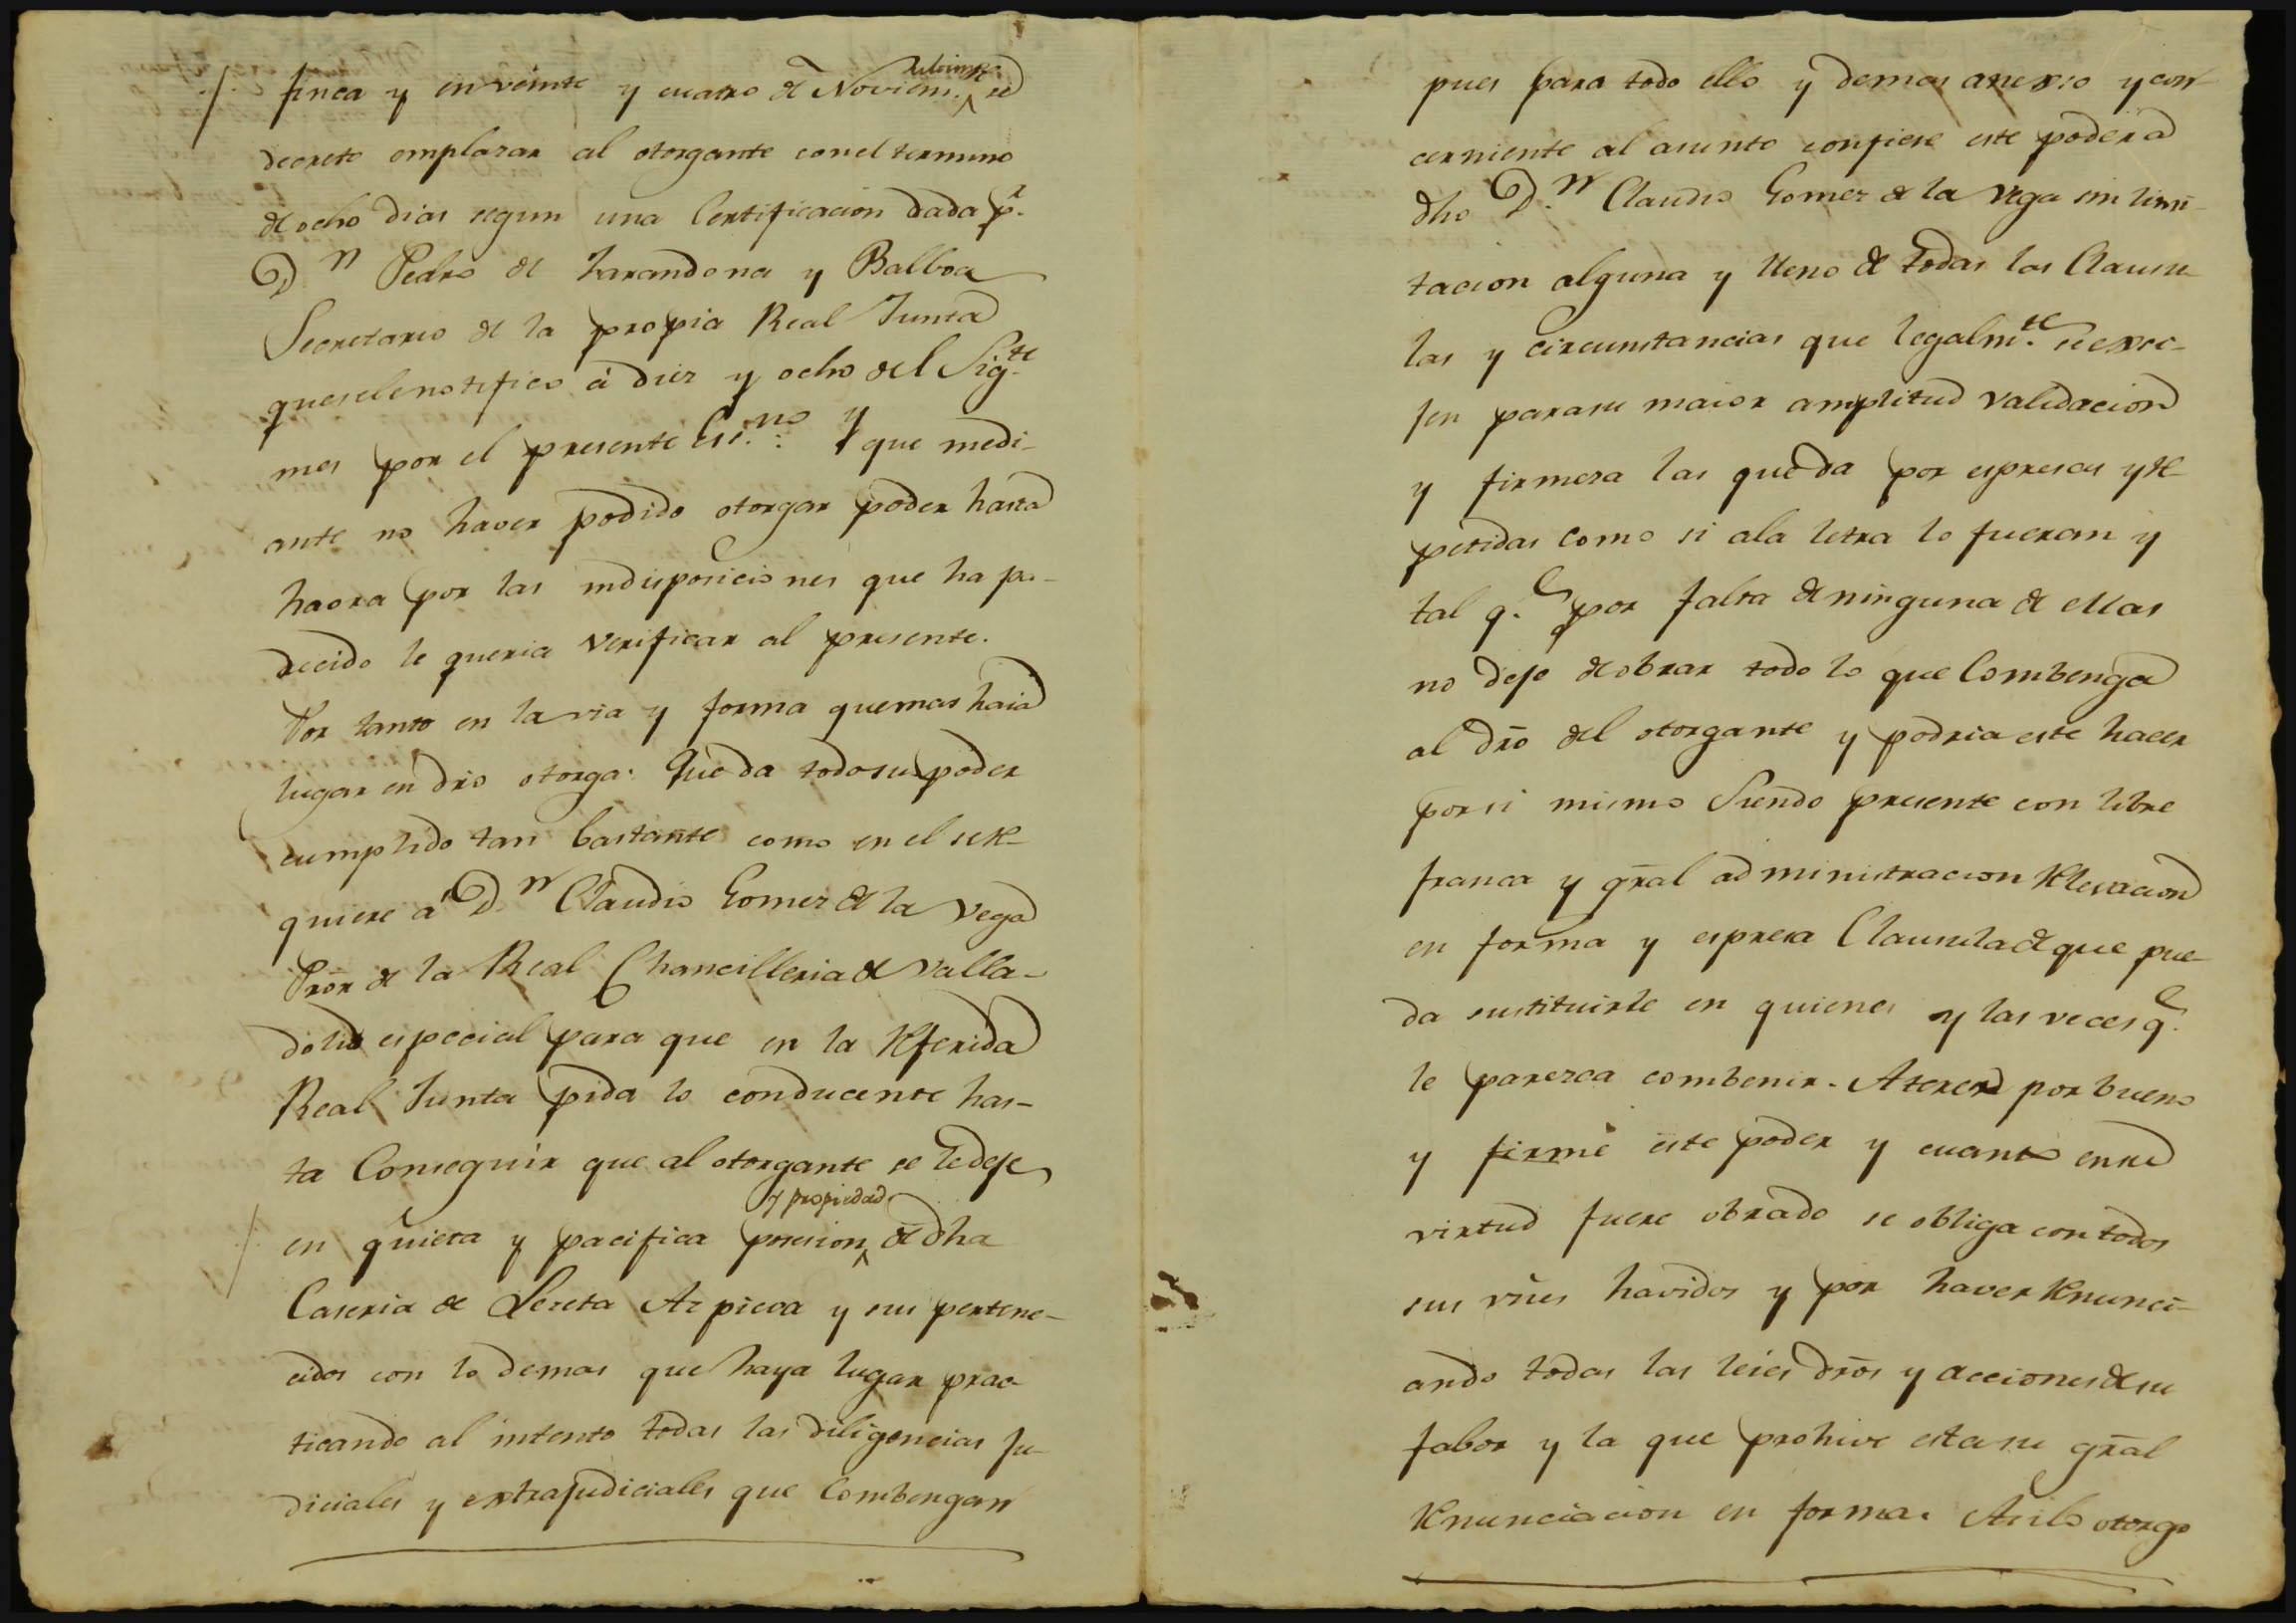 finca y en veinte y cuatro de Noviem.^ se
decreto emplasar al otorgante con el termino
de ocho dias segun una Certificacion dada pr.
Dn Pedro de Larandona y Balboa
Secretario de la propia Real Junta
que se le notifico á diez y ocho del Sigte
mes por el presente Esc.no: y que medi-
ante no haver podido otorgar poder hasta
haora por las indisposiciones que ha pa-
decido le queria verificar al presente.
Por tanto en la via y forma que mas haia
lugar en dro otorga: Que da todo su poder
cumplido tan bastante como en el se re-
quiere á D.n Claudio Gomez de la Vega
Pror de la Real Chancilleria de Valla-
dolid especial para que en la Referida
Real Junta pida lo conducente has-
ta Conseguir que al otorgante se le deje
y propiedad
en quieta y pacifica posesion^ de dha
Caseria de Lereta Azpicoa y sus pertene-
cidos con lo demas que haya lugar prac
ticando al intento todas las diligencias Ju-
diciales y extrajudiciales que Combengan
pues para todo ello y demas anexso y con-
cerniente al asunto confiere este poder a
dho D.n Claudio Gomez de la Vega sin limi-
tacion alguna y lleno de todas las Clausu
las y circunstancias que legalm.te se exec-
sen para su maior amplitud validacion
y firmeza las que da por espresas y re-
petidas como si a la letra lo fueran y
tal q.e por falta de ninguna de ellas
no deje de obrar todo lo que Combenga
al dro del otorgante y podria este hacer
por si mismo Siendo presente con libre
franca y gral administracion Relevacion
en forma y espresa Clausula de que pue-
da sustituirle en quienes y las veces q.e
le parezca combenir. A tener por bueno
y firme este poder y cuanto en su
virtud fuere obrado se obliga con todos
sus vnes havidos y por haver Renunci-
ando todas las leies dros y acciones de su
fabor y la que prohive esta su gral
Renunciacion en forma. Asi lo otorgo